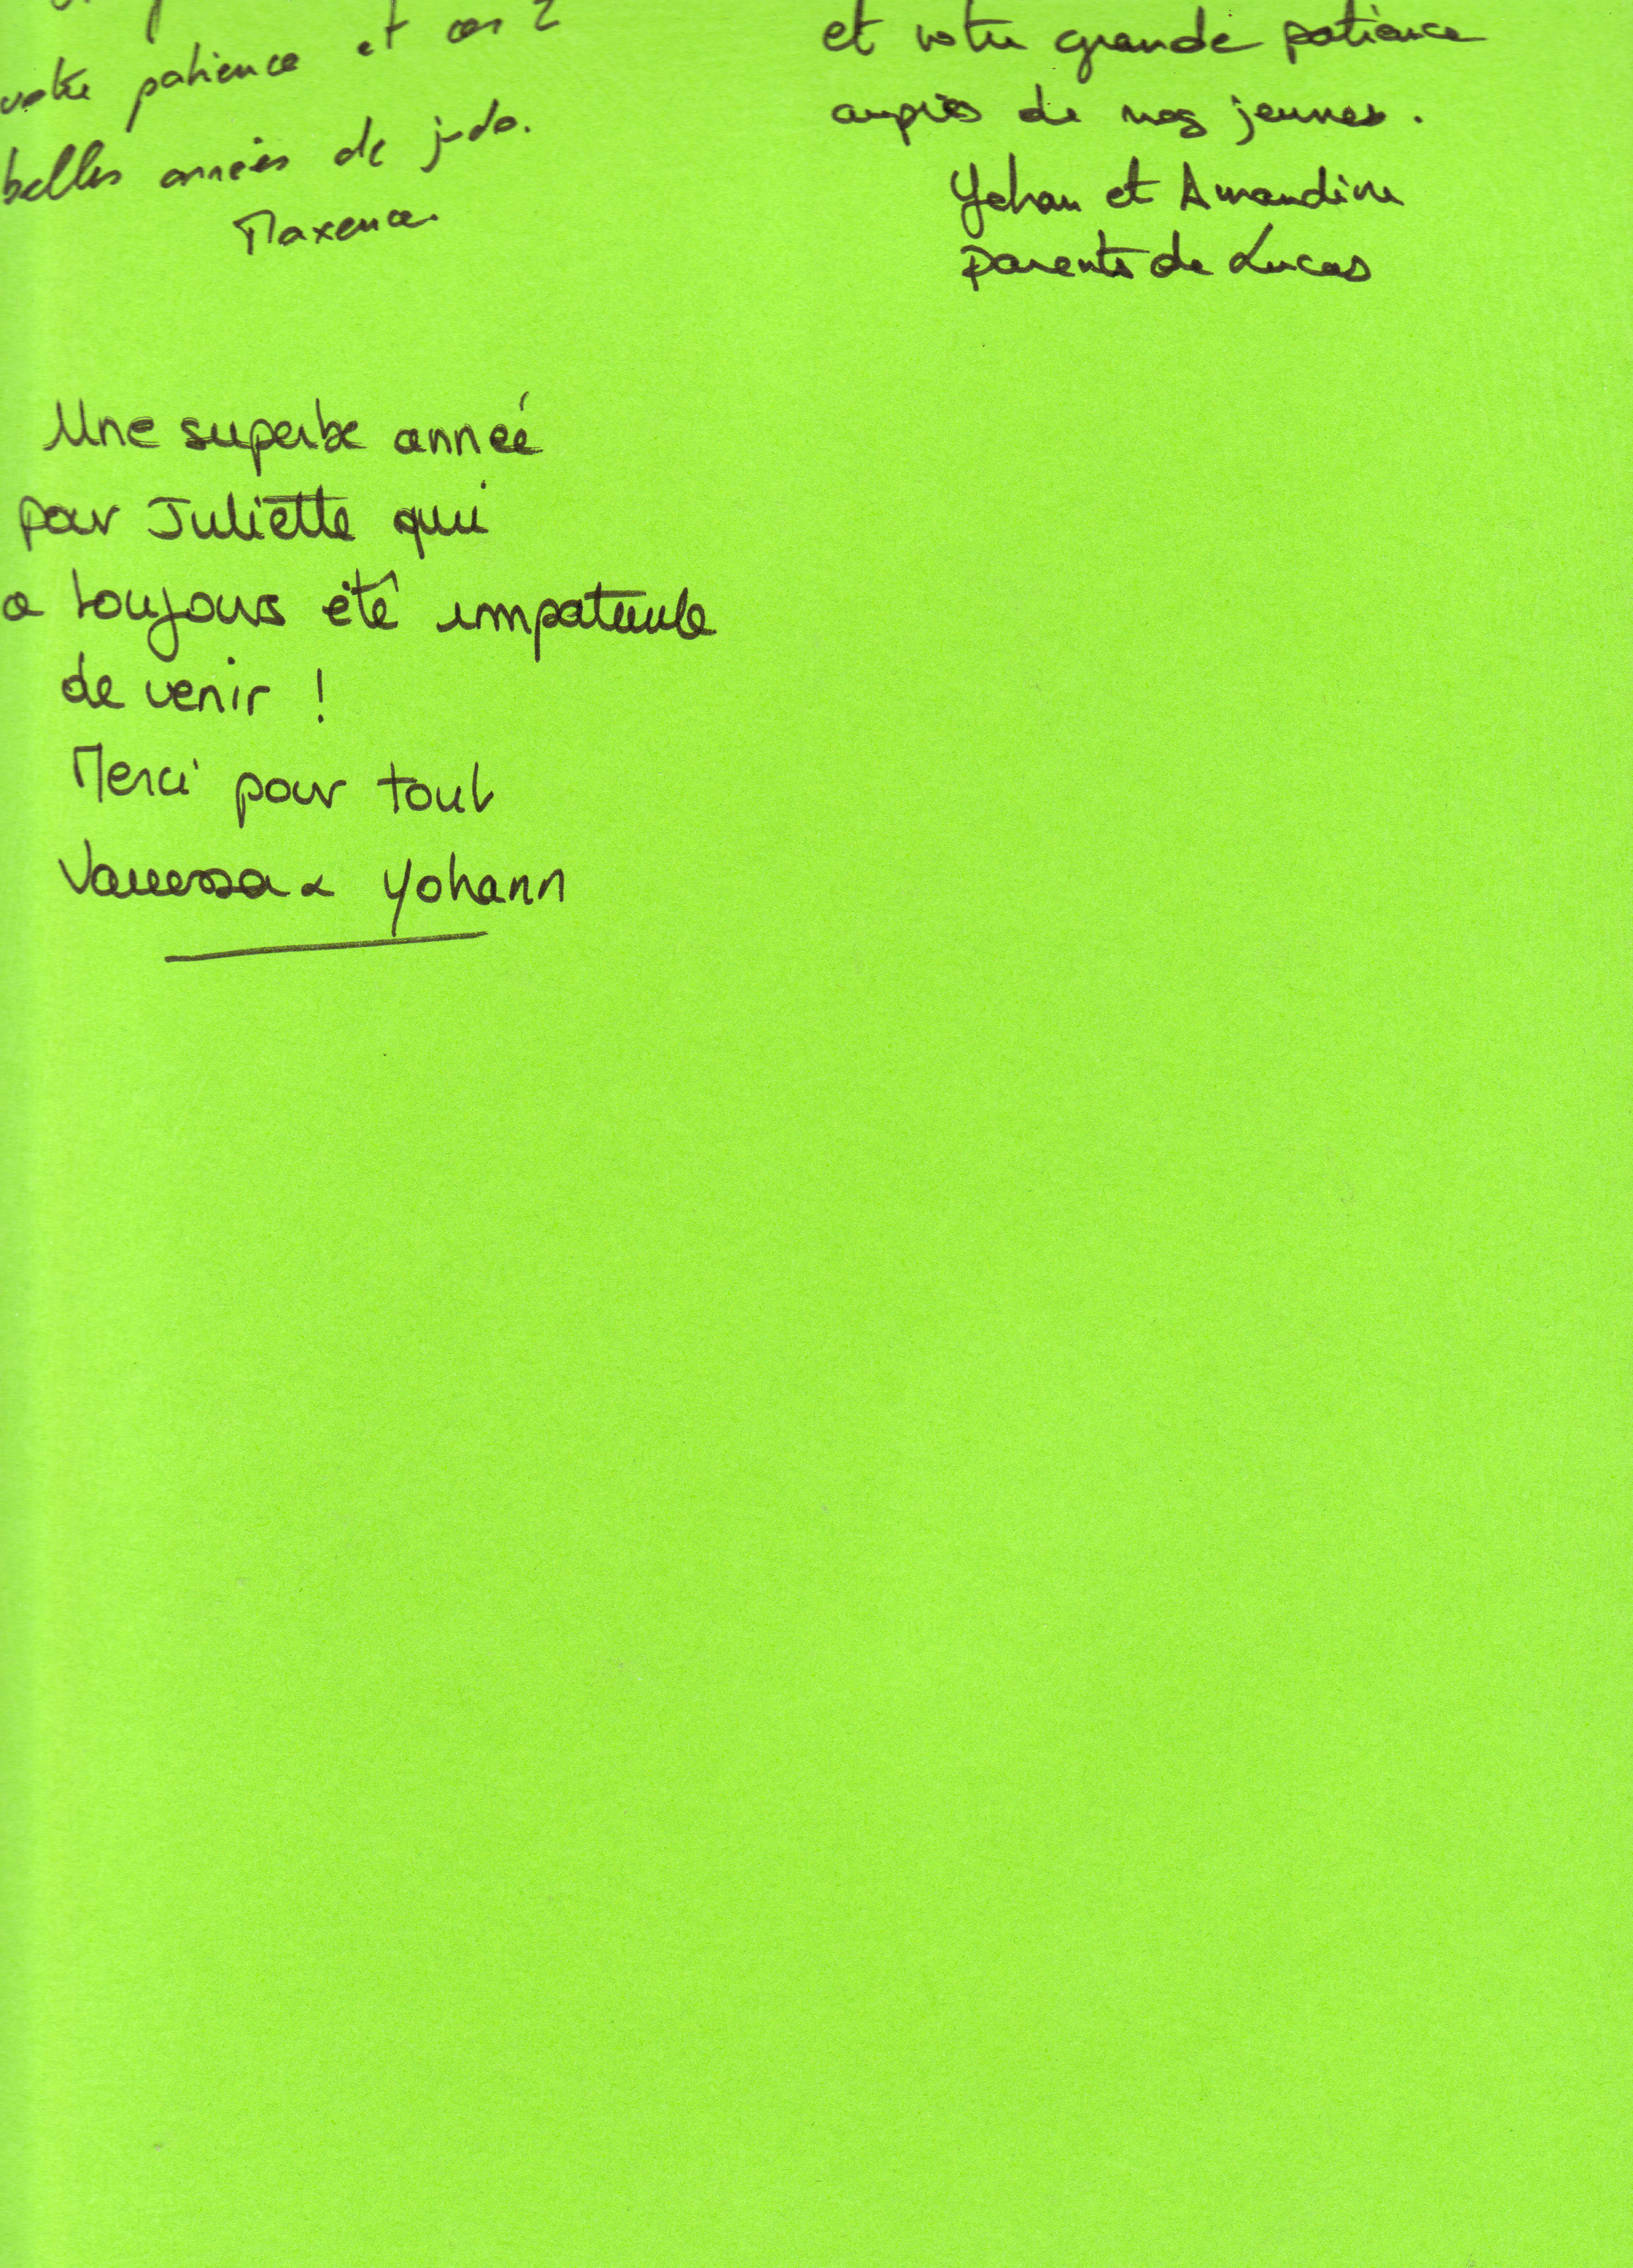 votre patience et ces 2
belles années de judo.
Maxence.
et votre grande patience
auprès de nos jeunes.
Yohan et Amandine
parents de Lucas
Une superbe année
pour Juliette qui
a toujours été impatiente
de venir !
Merci pour tout
Vanessa & Yohann